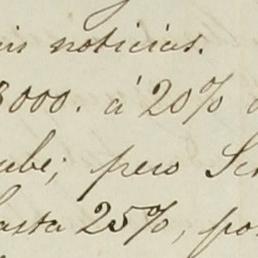 is noticias.
3000. á 20%
pero
hasta 25%, po